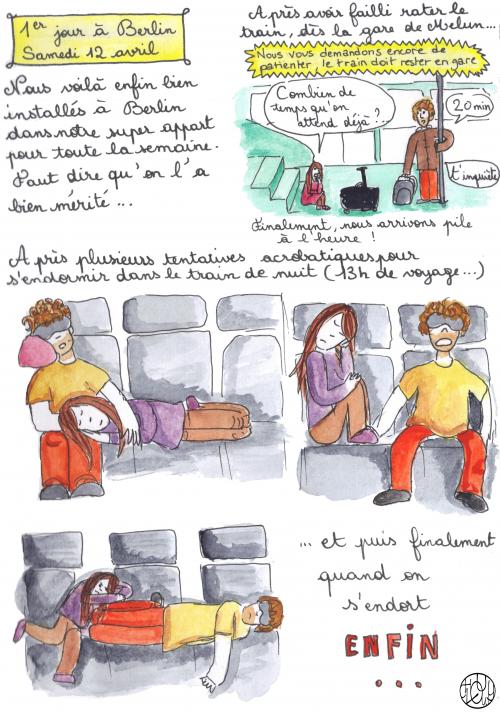 1er jour à Berlin
Samedi 12 avril
Nous voilà enfin bien
installés à Berlin
dans notre super appart
pour toute la semaine.
Faut dire qu'on l'a
bien mérité...
Après avoir failli rater le
train, dès la gare de Melun...
Nous vous demandons encore de
patienter, le train doit rester en gare
Combien de
temps qu'on
attend déjà?...
20min
t'inquiète
Finalement, nous arrivons pile
à l'heure!
Après plusieurs tentatives acrobatiques pour
s'endormir dans le train de nuit (13h de voyage...)
... et puis finalement
quand on
s'endort
ENFIN
...